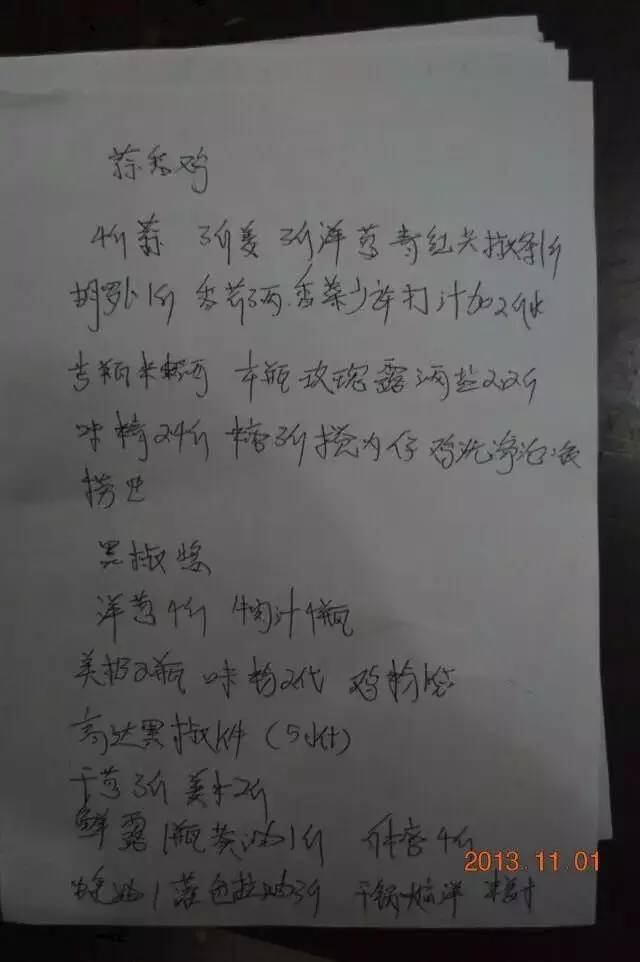 蒜香鸡
4斤蒜 3斤姜 3斤洋葱 青红尖椒各1斤
胡罗卜1斤 香芹3两 香菜少许打汁加2斤水
支瓶米酒 半瓶玫瑰露酒盐2.2斤
味精24斤 糖3斤 鸡洗净泡
捞出
黑椒酱
洋葱4斤 牛肉汁4瓶
美极2瓶 味粉2代 鸡粉1代
高达黑椒1件 (5小件)
干葱3斤 姜米2斤
鲜露1瓶 黄油1斤 4斤
老抽1 色拉油3斤 干锅
2013.11.01